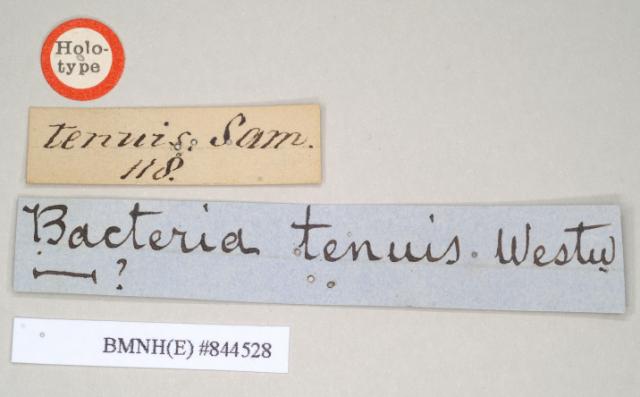 Holo-
type
tenuis. Sam.
118.
Bacteria tenuis. Westw
?
BMNH(E) #844528